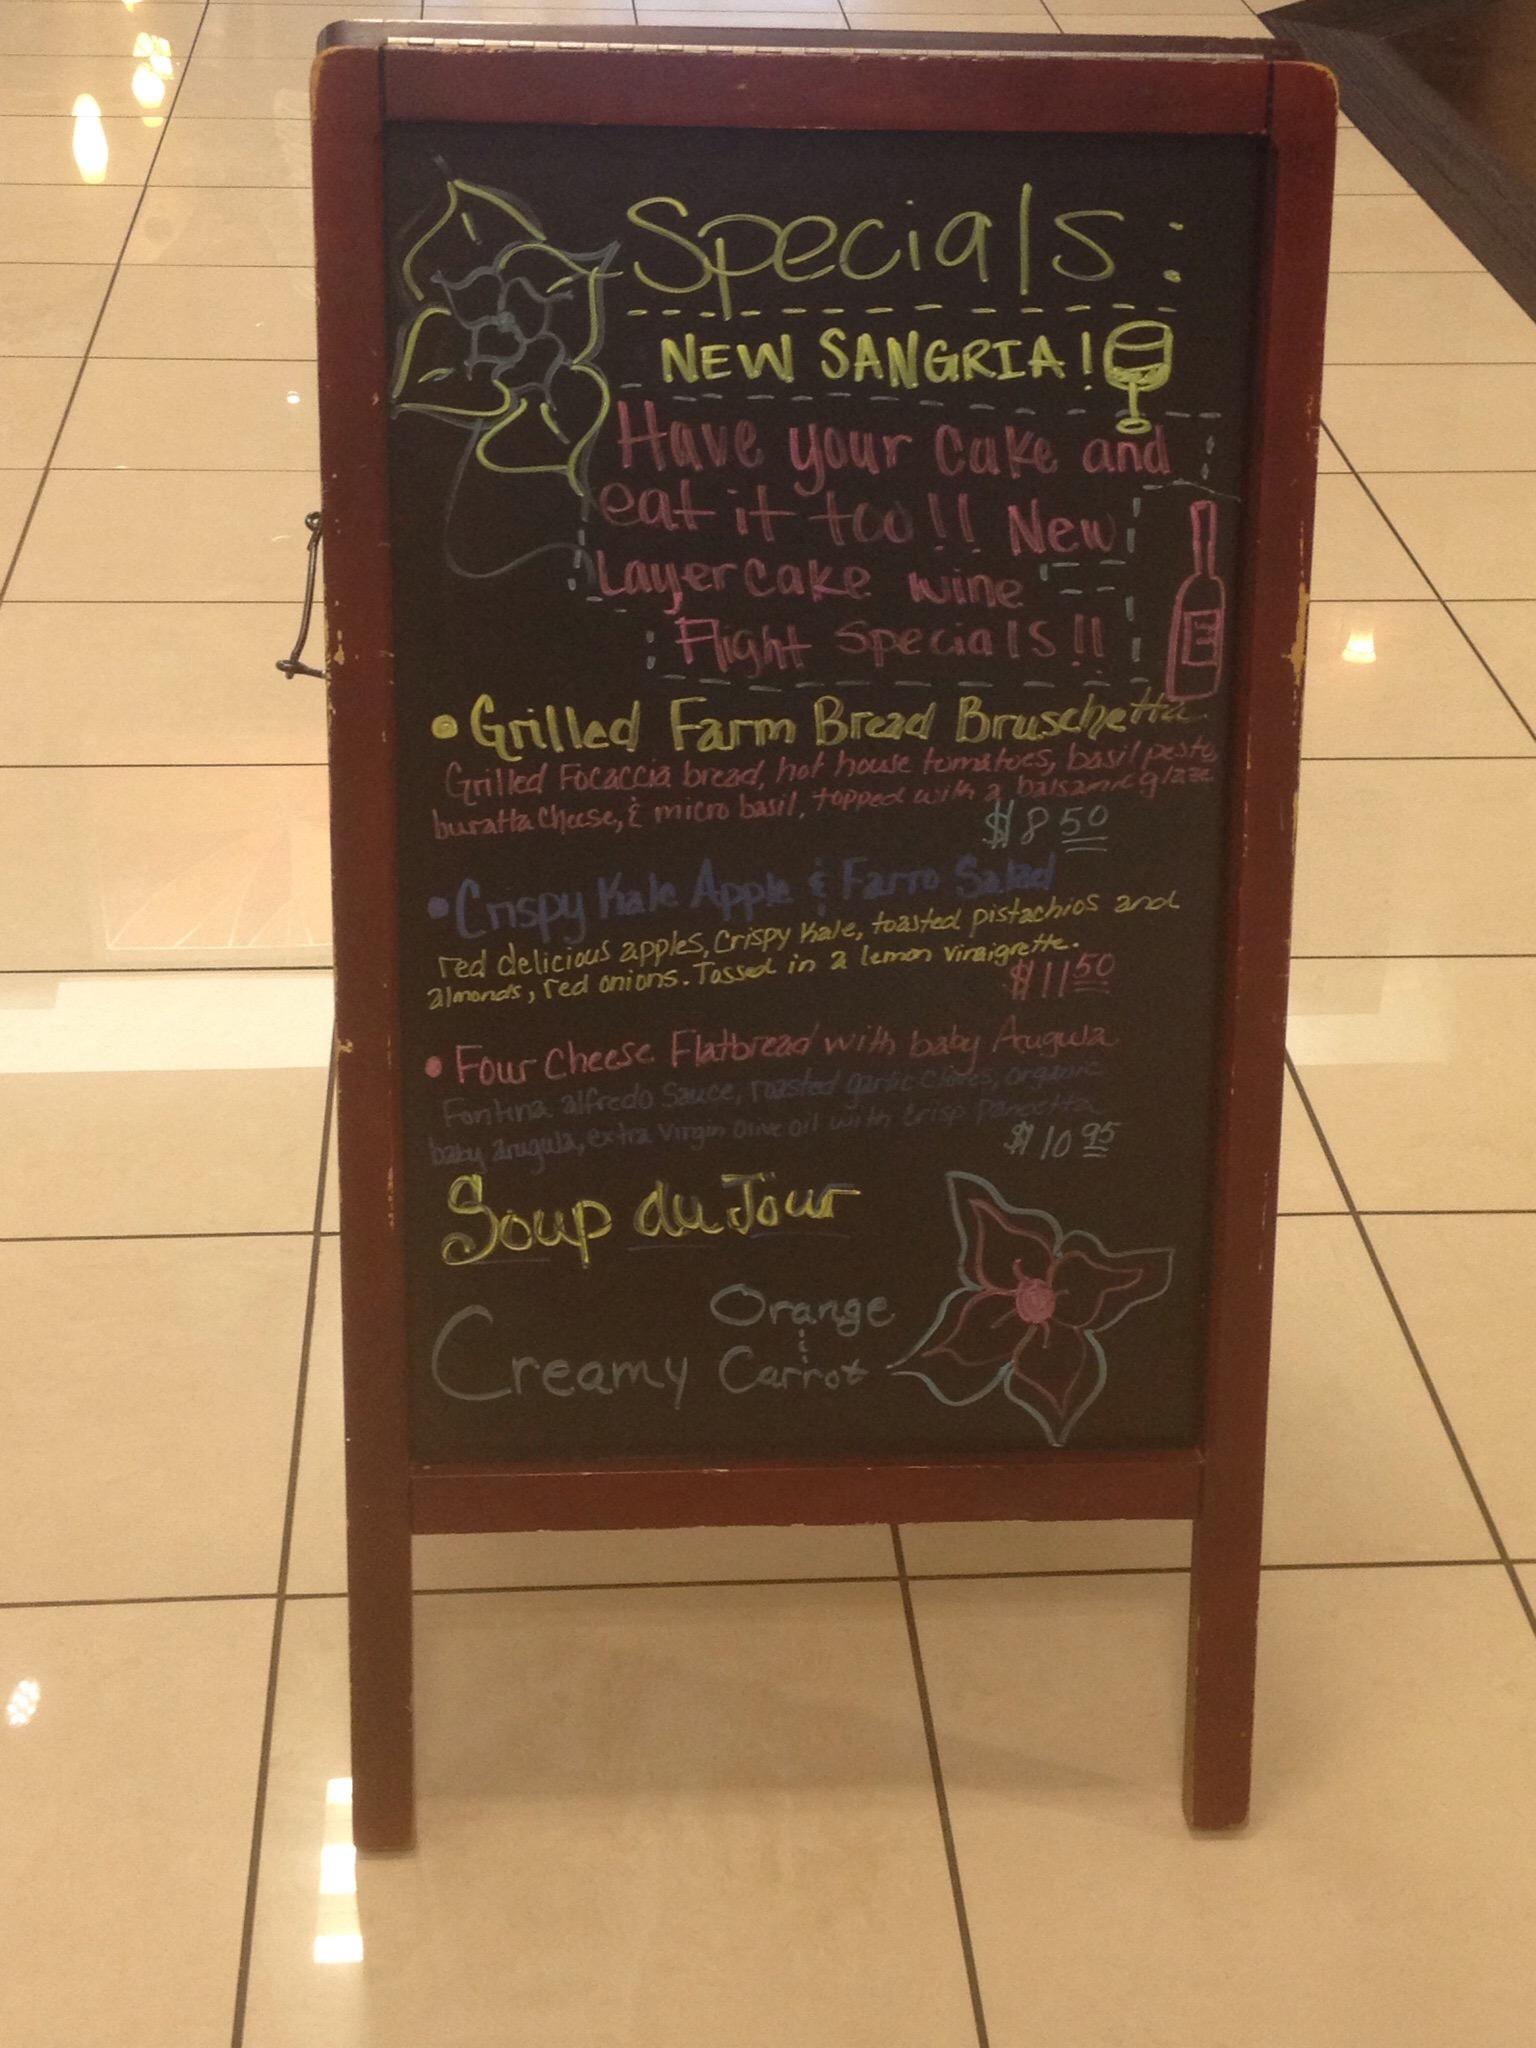 Specials:
NEW SANGRIA!
Have your cake and
eat it too!! New
Layer cake wine
Flight specials!!
• Grilled Farm Bread Bruschetta
Grilled Focaccia bread, hot house tomatoes, basil pesto,
buratta cheese, & micro basil, topped with a balsamic glaze
$8 50
• Crispy Kale Apple & Farro Salad
red delicious apples, crispy kale, toasted pistachios and
almonds, red onions. Tossed in a lemon vinaigrette.
$11 50
• Four Cheese Flatbread with baby Arugula
Fontina alfredo sauce, roasted garlic cloves, organic
baby arugula, extra virgin olive oil with crisp pancetta
$10 95
Soup du Jour
Orange
Creamy Carrot
E